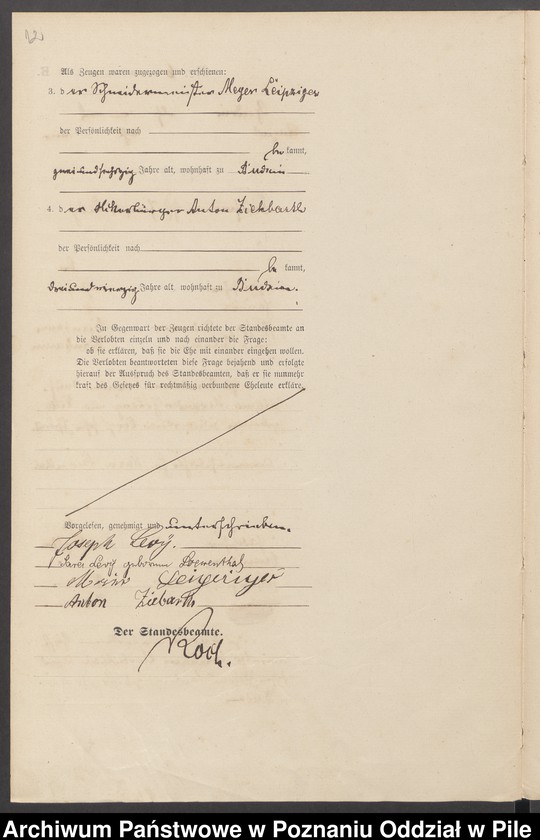 Als Zeugen waren zugezogen und erschienen:
3. der Schneidermeister Meyer Leipziger
der Persönlichkeit nach
be kannt,
zweiundsechzig Jahre alt, wohnhaft zu Budsin
4. der Ackerbürger Anton Ziehbarth
der Persönlichkeit nach
be kannt,
dreiundvierzig Jahre alt, wohnhaft zu Budsin.
In Gegenwart der Zeugen richtete der Standesbeamte an
die Verlobten einzeln und nach einander die Frage:
ob sie erklären, daß sie die Ehe mit einander eingehen wollen.
Die Verlobten beantworteten diese Frage bejahend und erfolgte
hierauf der Ausspruch des Standesbeamten, daß er sie nunmehr
kraft des Gesetzes für rechtmäßig verbundene Eheleute erkläre.
Vorgelesen, genehmigt und unterschrieben.
Joseph Levÿ.
Levy geborene Loewenthal
Meier Leipziger
Anton Ziebarth
Der Standesbeamte.
Koch.
Archiwum Państwowe w Poznaniu Oddział w Pile